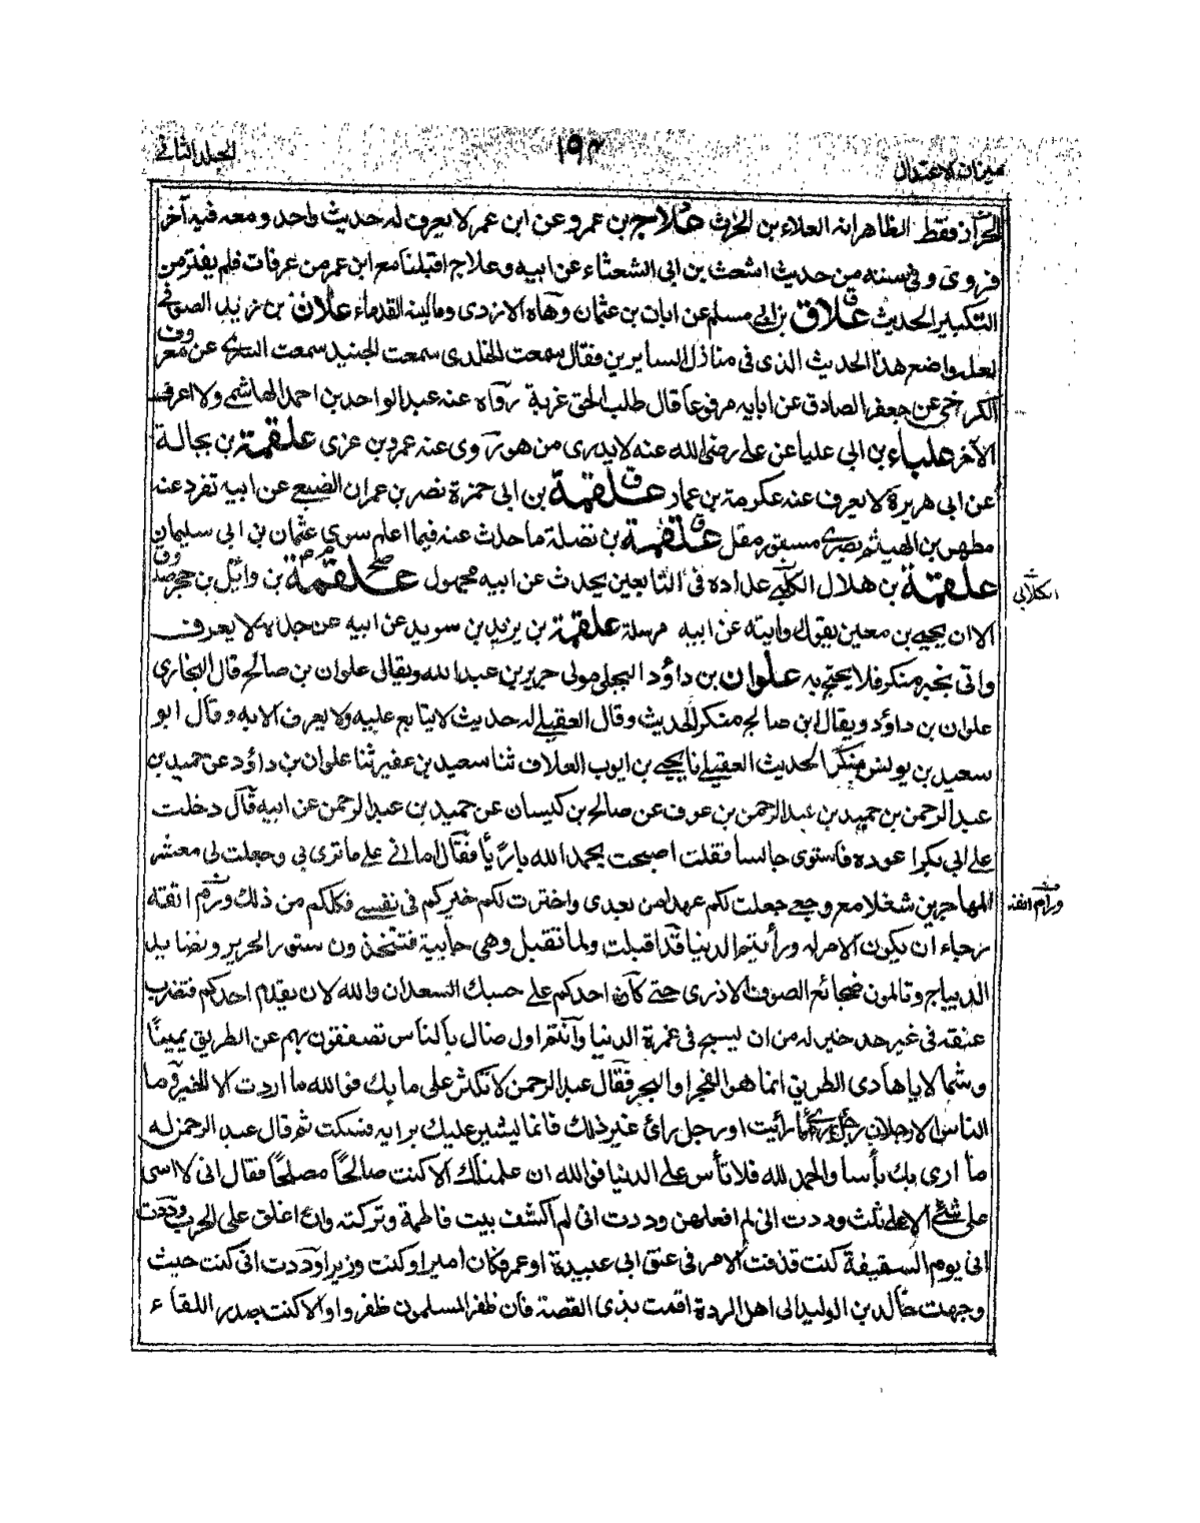 الجلد الثاني
١٩٢
ميزان الاعتدال
فقط الظاهر انه العلاء بن الحرث علاج بن عمرو عن ابن عمر لا يعرف له حديث واحد ومعه فيه آخر
فروى وفي سننه من حديث اشعث بن ابى الشعثاء عن ابيه وعلاج اقبلنا مع ابن عمر من عرفات فلم يفتر من
التكبير الحديث علاق بن ابى مسلم عن ابان بن عثمان وهاه الازدى ومالينه القدماء علان بن زيد الصوفي
لعله واضع هذا الحديث الذى فى منازل السايرين فقال سمعت الخلدى سمعت الجنيد سمعت السرى عن معروف
الكرخي عن جعفر الصادق عن ابايه مرفوعا قال طلب الحق غربة رواه عنه عبد الواحد بن احمد الهاشمى ولا اعرف
الآخر علباء بن ابى عليا عن على رضى الله عنه لا يدرى من هو روى عنه عمرو بن عزى علقمة بن بجالة
عن ابى هريرة لا يعرف عنه عكرمة بن عمار علقمة بن ابى حمزة نصر بن عمران الضبعي عن ابيه تفرد عنه
مطهر بن الهيثم بصرى علقمة بن نضلة ما حدث عنه فيما اعلم سوى عثمان بن ابى سليمان
علقمة بن هلال الكلبى عداده فى التابعين يحدث عن ابيه مجهول علقمة بن وائل بن حجر صدوق
الكلابي
الا ان يحيى بن معين يقول روايته عن ابيه مرسلة علقمة بن يزيد بن سويد عن ابيه عن جده لا يعرف
واتى بخبر منكر فلا يحتج به علوان بن داؤد البجلى مولى جرير بن عبد الله ويقال علوان بن صالح قال البخارى
علوان بن داؤد ويقال ابن صالح منكر الحديث وقال العقيلى له حديث لا يتابع عليه ولا يعرف الا به وقال ابو
سعيد بن يونس منكر الحديث العقيلى نا يحيى بن ايوب العلاف ثنا سعيد بن عفير ثنا علوان بن داؤد عن حميد بن
عبد الرحمن بن حميد بن عبد الرحمن بن عوف عن صالح بن كيسان عن حميد بن عبد الرحمن عن ابيه قال دخلت
على ابى بكر اعوده فاستوى جالسا فقلت اصبحت بحمد الله بارئا فقال اما انى على ما ترى بى وجعلت لى معشر
المهاجرين شغلا مع وجعى جعلت لكم عهدا من بعدى واخترت لكم خيركم فى نفسى فكلكم من ذلك ورم انفه
ورم انفه
رجاء ان يكون الامر له ورأيتم الدنيا قد اقبلت ولما تقبل وهى جايية فتتخذون ستور الحرير ونضايد
الديباج وتالمون ضجائع الصوف الاذرى حتى كأن احدكم على حسك السعدان والله لان يقدم احدكم فتضرب
عنقه فى غير حد خير له من ان يسبح فى غمرة الدنيا وأنتم اول ضال بالناس تصفقون بهم عن الطريق يمينا
وشمالا يا هادى الطريق انما هو الفجر او البجر فقال عبد الرحمن لا تكثر على ما بك فو الله ما اردت الا الخير وما
الناس الا رجلان رجل رأى ما رأيت او رجل رأى غير ذلك فانما يشير عليك برايه فسكت ثم قال عبد الرحمن له
ما ارى بك بأسا والحمد لله فلا تأس على الدنيا فو الله ان علمناك الا كنت صالحًا مصلحًا فقال انى لا اسى
على شئ الا على ثلث وددت انى لم افعلهن وددت انى لم اكشف بيت فاطمة وتركته وان اغلق على الحرب وددت
انى يوم السقيفة كنت قذفت الامر فى عنق ابى عبيدة او عمر فكان اميرا وكنت وزيرا وددت انى كنت حيث
وجهت خالد بن الوليد الى اهل الردة اقمت بذى القصة فان ظفر المسلمون ظفروا والا كنت بصدر اللقاء